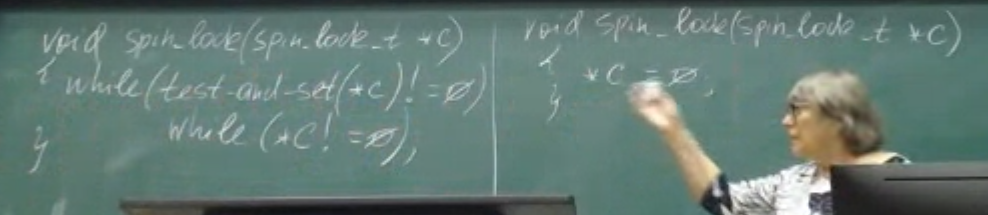 void spin_lock(spin_lock_t *C)
{ while(test-and-set(*c)!=Ø)
while(*C!=Ø);
}
void spin_lock(spin_lock_t *C)
{
*C=Ø;
}